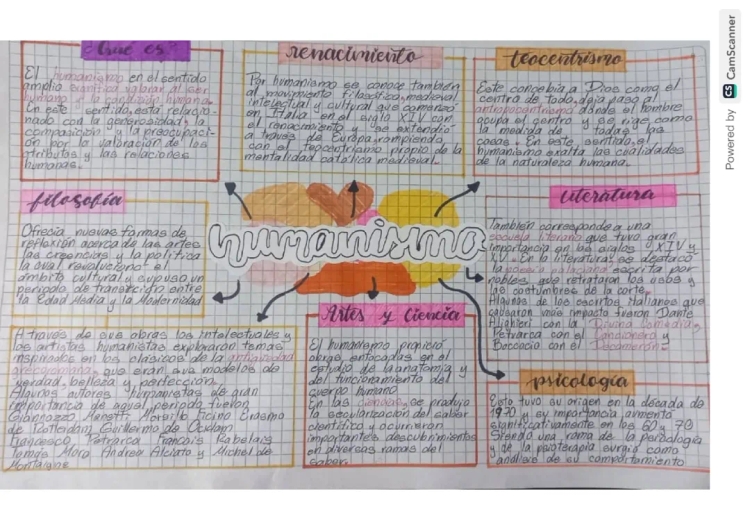 Qué es
El humanismo en el sentido
amplio significa valorar al ser
humano y la condición humana.
En este sentido, está relacio-
nado con la generosidad, la
compasión y la preocupaci-
ón por la valoración de los
atributos y las relaciones
humanas.
renacimiento
Por humanismo se conoce también
al movimiento filosófico, medieval,
intelectual y cultural que comenzó
en Italia en el siglo XIV con
el renacimiento y se extendió
a través de Europa rompiendo
con el teocentrismo propio de la
mentalidad católica medieval.
teocentrismo
Este concebía a Dios como el
centro de todo, deja paso al
antropocentrismo donde el hombre
ocupa el centro y se rige como
la medida de todas las
cosas. En este sentido, el
humanismo exalta las cualidades
de la naturaleza humana.
filosofía
Ofrecía nuevas formas de
reflexión acerca de las artes
las creencias y la política
la cual revolucionó el
ámbito cultural y supuso un
período de transición entre
la Edad Media y la Modernidad
humanismo
literatura
También corresponde a una
escuela literaria que tuvo gran
importancia en los siglos XIV y
XV. En la literatura, se destacó
la poesía palaciana escrita por
nobles, que retrataron los usos y
las costumbres de la corte.
Algunos de los escritos italianos que
causaron más impacto fueron Dante
Alighieri con la Divina Comedia,
Petrarca con el Cancionero y
Boccacio con el Decamerón.
A través de sus obras los intelectuales y
los artistas humanistas exploraron temas
inspirados en los clásicos de la antigüedad
grecorromana, que eran sus modelos de
verdad, belleza y perfección.
Algunos autores humanistas de gran
importancia de aquel período fueron
Giannozzo Manetti Marsilio Ficino Erasmo
de Rotterdam Guillermo de Ockham
Francesco Petrarca Francois Rabelais
Tomás Moro Andrea Alciato y Michel de
Montaigne
Artes y Ciencia
El humanismo propició
obras enfocadas en el
estudio de la anatomía y
del funcionamiento del
cuerpo humano
En las ciencias, se produjo
la secularización del saber
científico y ocurrieron
importantes descubrimientos
en diversas ramas del
saber.
psicología
Esto tuvo su origen en la década de
1930 y su importancia aumentó
significativamente en los 60 y 70
Siendo una rama de la psicología
y de la psicoterapia surgió como
análisis de su comportamiento
Powered by CS CamScanner